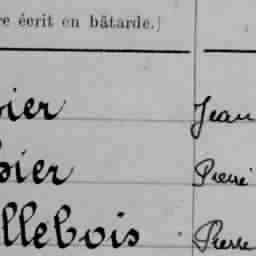 re écrit en bâtarde.)
ier Jean
ier Pierre
llebois Pierre